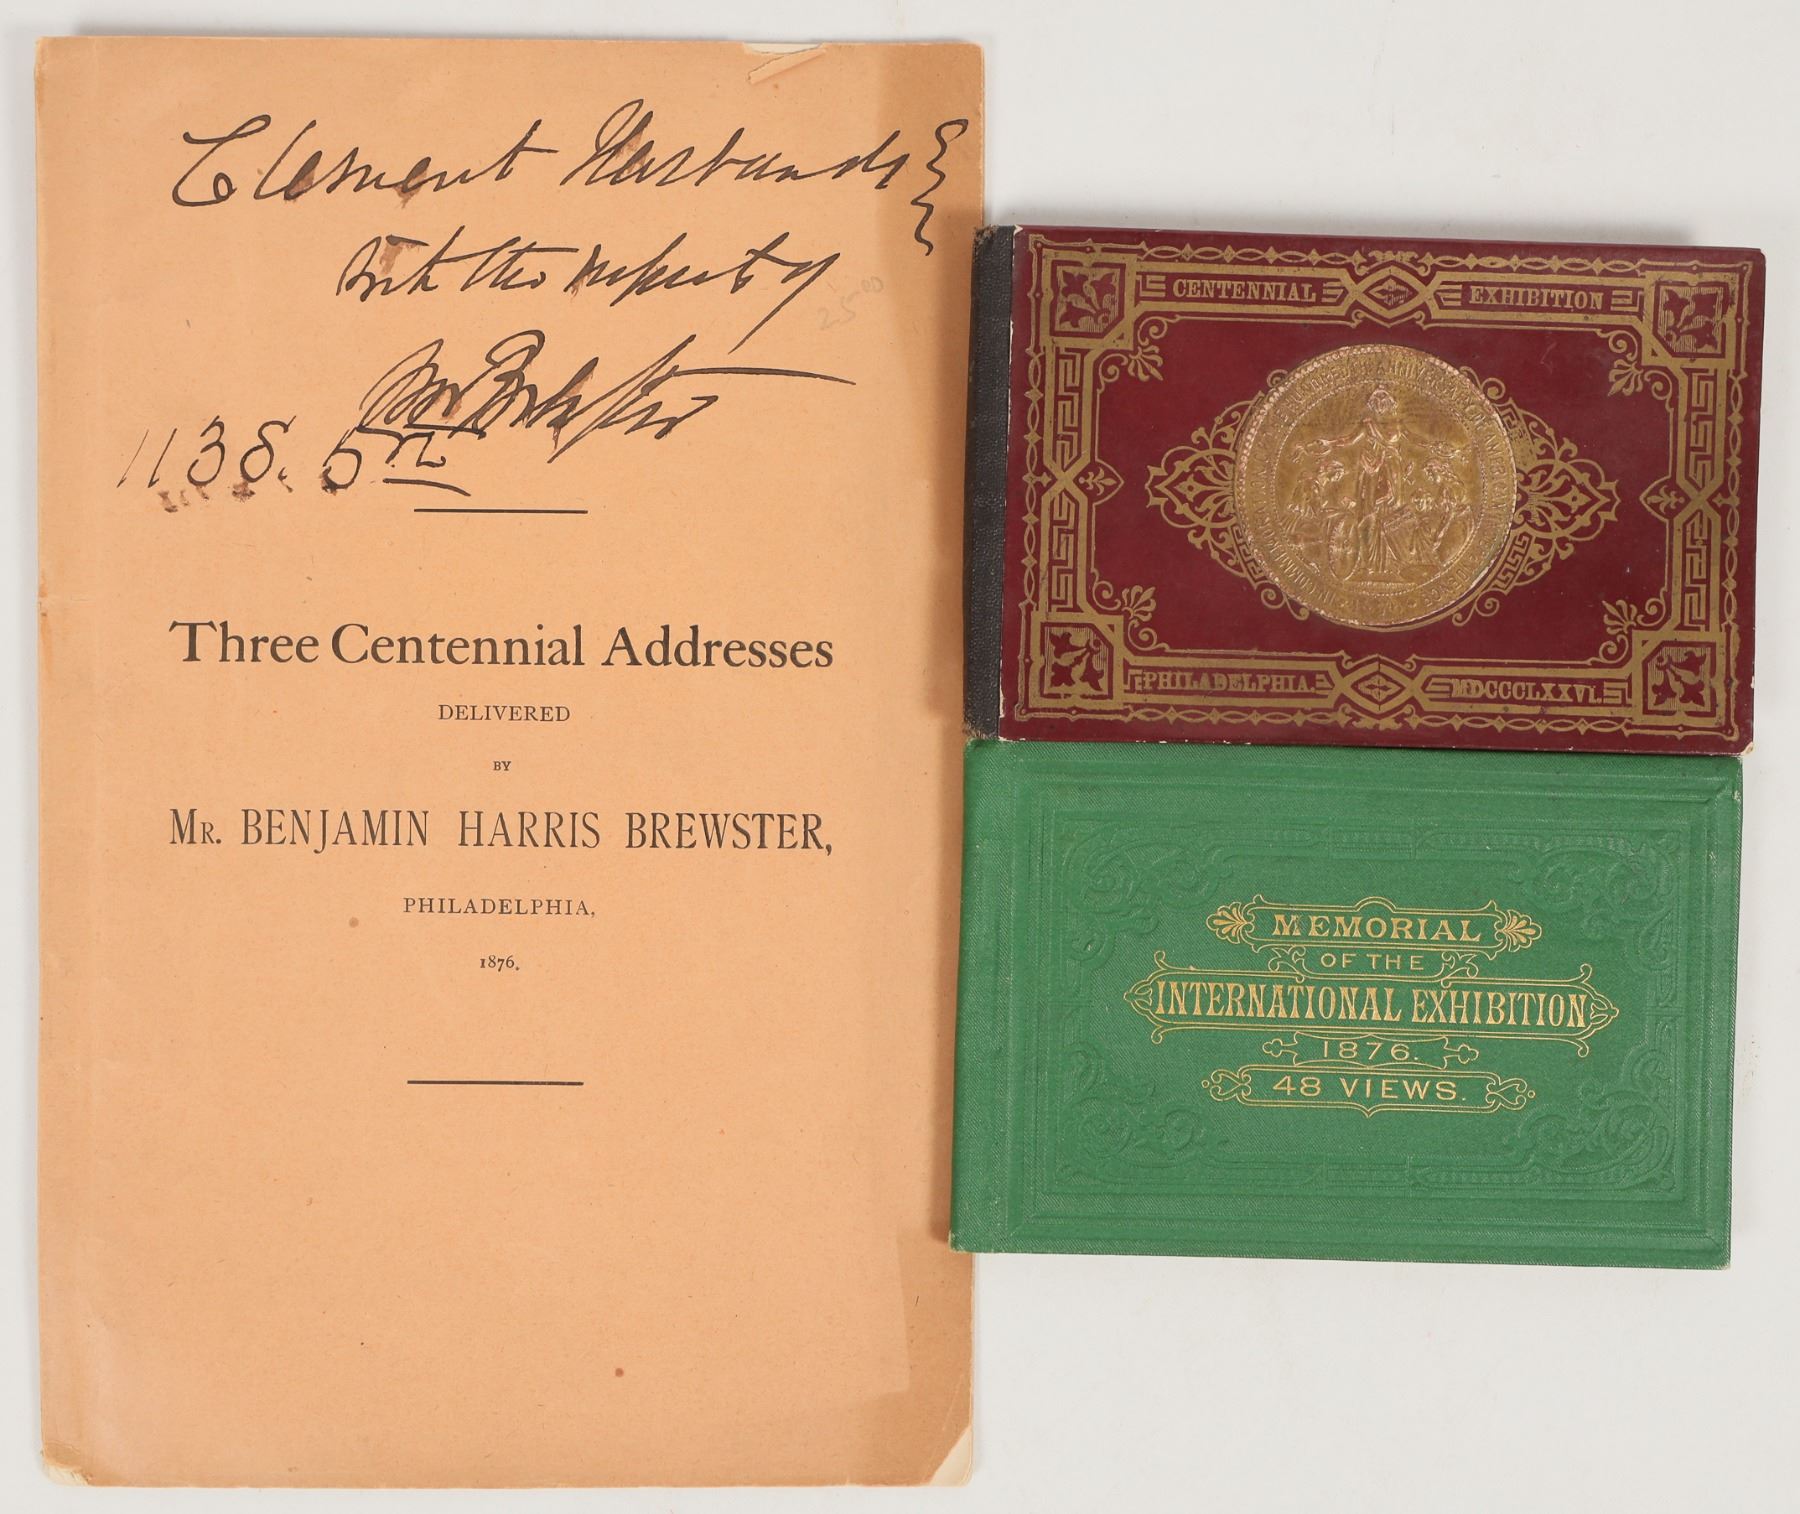 Clement
with the respects of
25.00
1138. 5
Three Centennial Addresses
DELIVERED
BY
MR. BENJAMIN HARRIS BREWSTER,
PHILADELPHIA,
1876.
CENTENNIAL EXHIBITION
PHILADELPHIA. MDCCCLXXVI.
MEMORIAL
OF THE
INTERNATIONAL EXHIBITION
1876.
48 VIEWS.